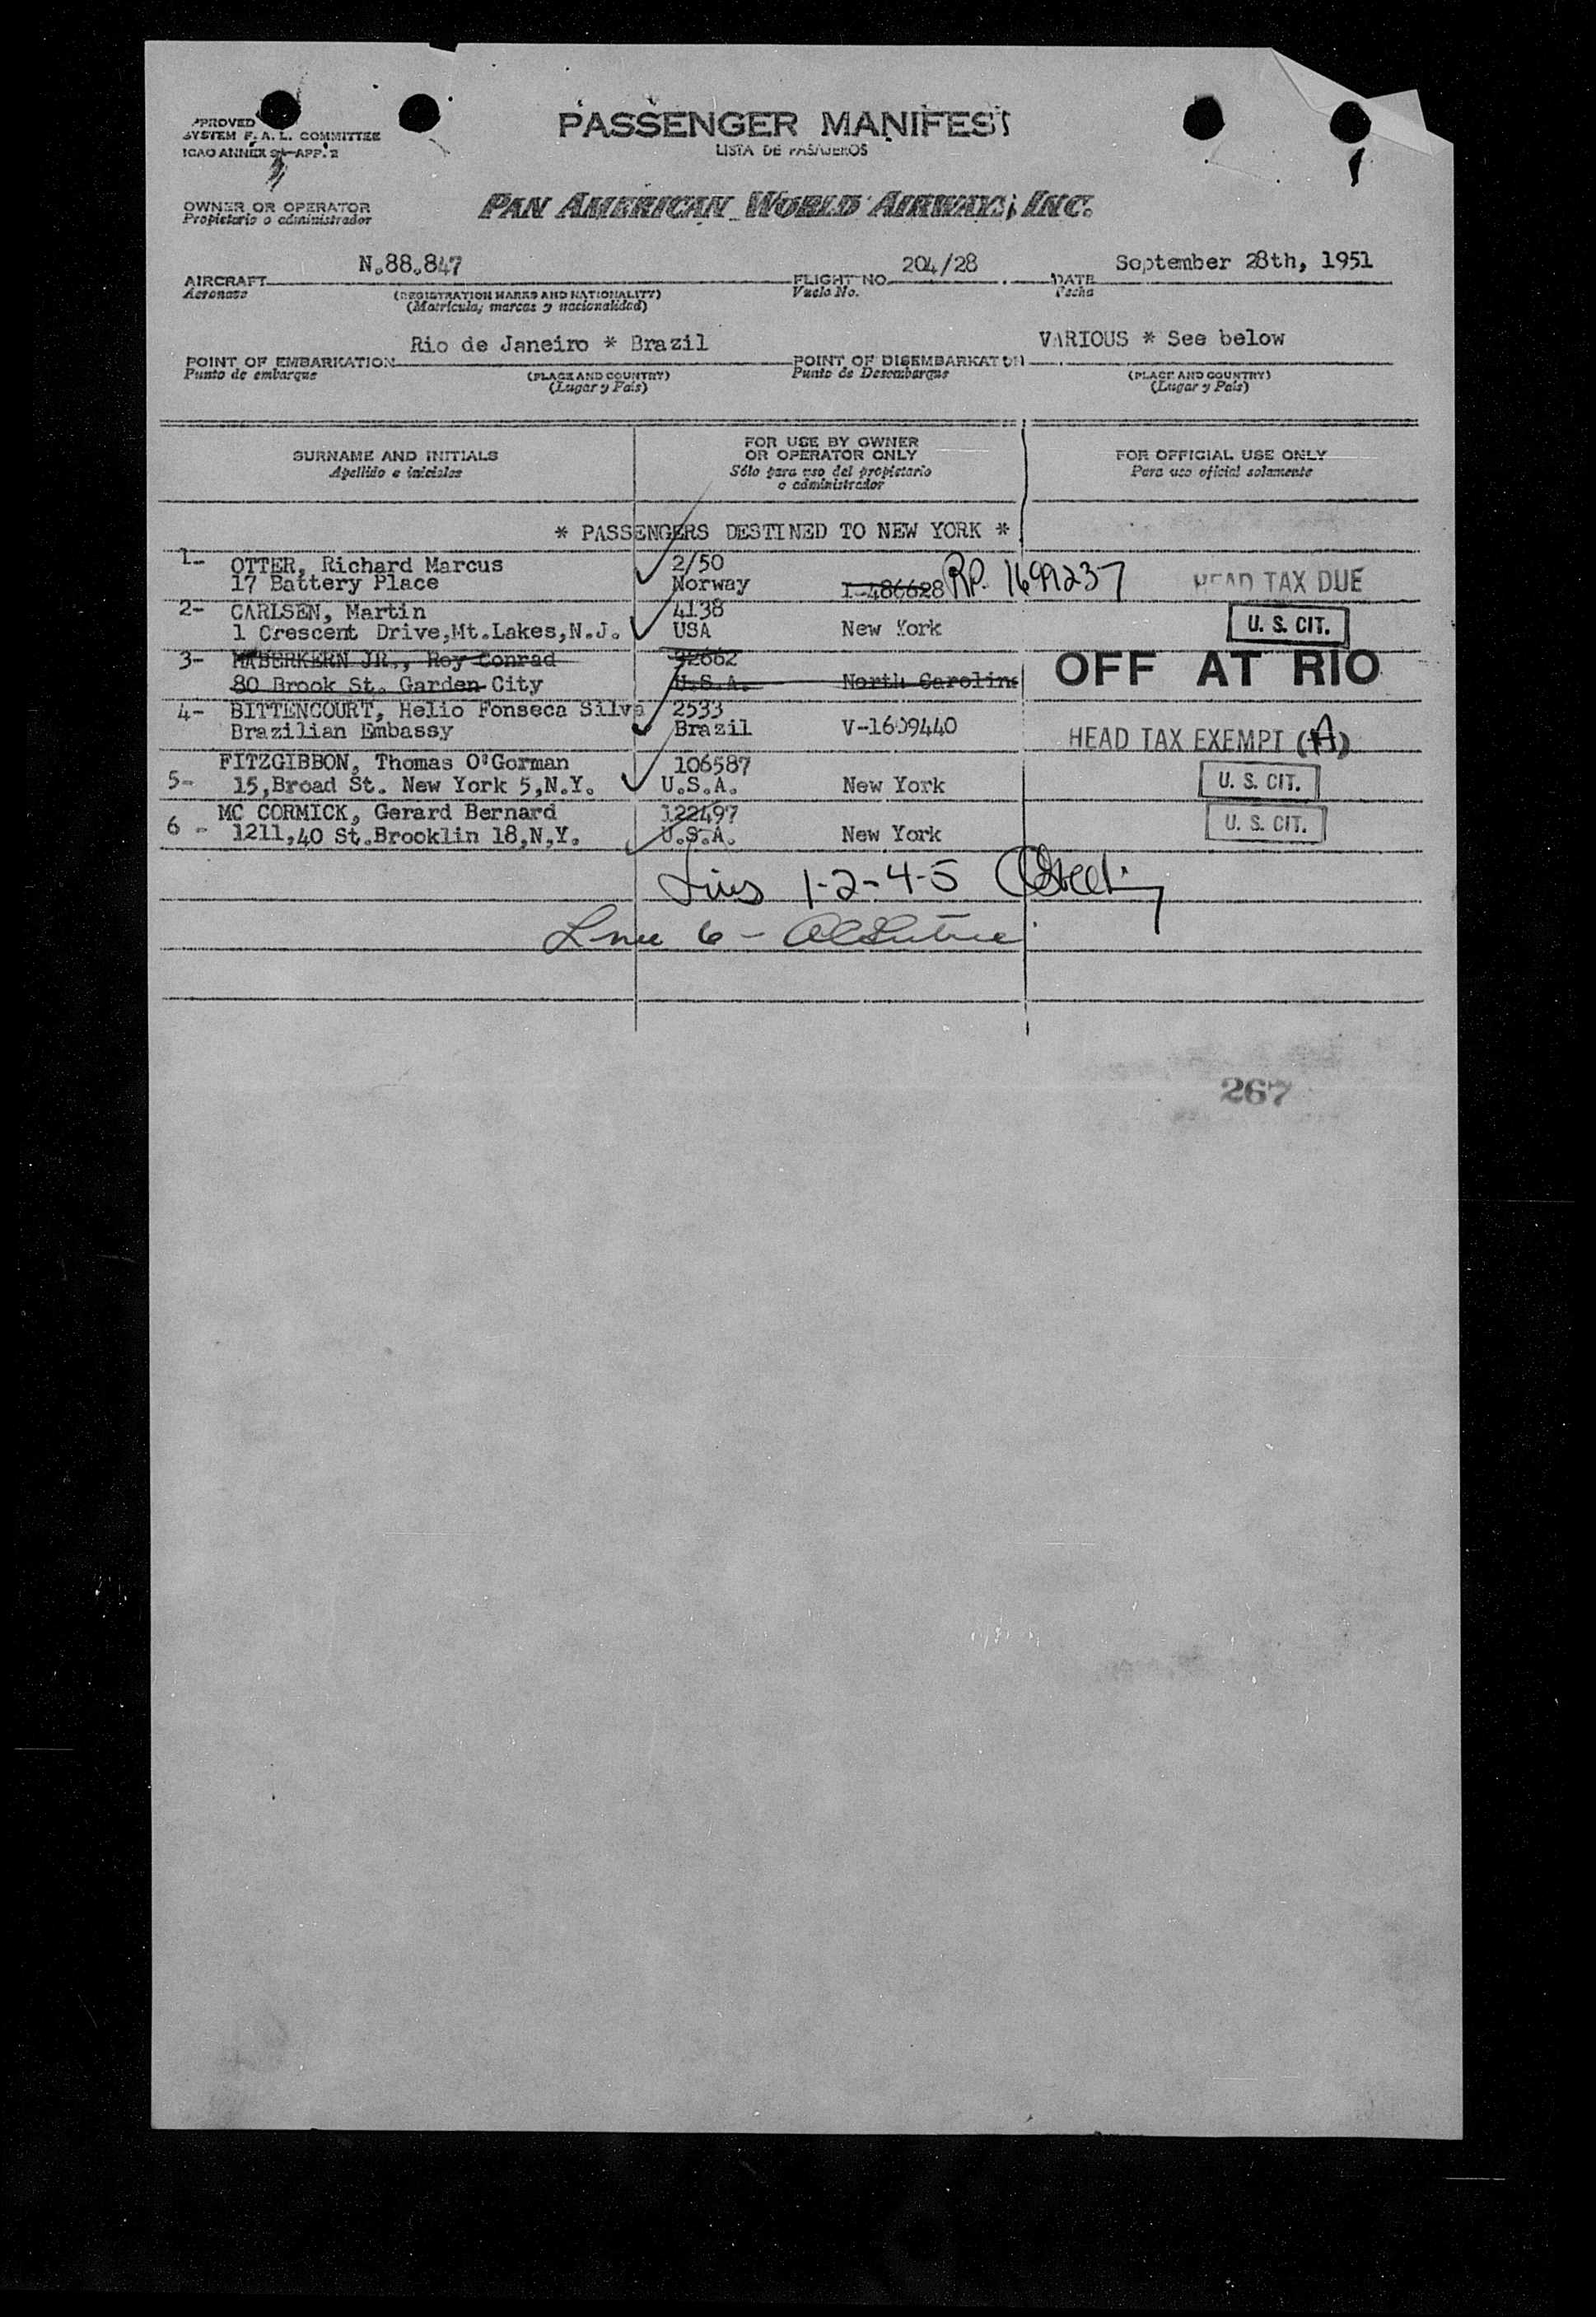 PPROVED
SYSTEM F. A. L. COMMITTEE
ICAO ANNEX 9—APP. 2
PASSENGER MANIFEST
LISTA DE PASAJEROS
OWNER OR OPERATOR
Propietario o administrador
PAN AMERICAN WORLD AIRWAYS, INC.
AIRCRAFT N.88.847 FLIGHT NO. 204/28 DATE September 28th, 1951
Aeronave (REGISTRATION MARKS AND NATIONALITY) Vuelo No. Fecha
(Matrícula, marcas y nacionalidad)
POINT OF EMBARKATION Rio de Janeiro * Brazil POINT OF DISEMBARKATION VARIOUS * See below
Punto de embarque (PLACE AND COUNTRY) Punto de Desembarque (PLACE AND COUNTRY)
(Lugar y País) (Lugar y País)
SURNAME AND INITIALS
Apellido e iniciales
FOR USE BY OWNER
OR OPERATOR ONLY
Sólo para uso del propietario
o administrador
FOR OFFICIAL USE ONLY
Para uso oficial solamente
* PASSENGERS DESTINED TO NEW YORK *
1- OTTER, Richard Marcus 2/50
17 Battery Place Norway I-486628 RP. 1699237 HEAD TAX DUE
2- CARLSEN, Martin 4138
1 Crescent Drive,Mt.Lakes,N.J. USA New York U. S. CIT.
3- JR., Roy Conrad 92662
80 Brook St. Garden City U.S.A. North Carolina OFF AT RIO
4- BITTENCOURT, Helio Fonseca Silva 2533
Brazilian Embassy Brazil V-1609440 HEAD TAX EXEMPT (A)
FITZGIBBON, Thomas O'Gorman 106587
5- 15,Broad St. New York 5,N.Y. U.S.A. New York U. S. CIT.
MC CORMICK, Gerard Bernard 122497
6 - 1211,40 St.Brooklin 18,N,Y. U.S.A. New York U. S. CIT.
1-2-4-5
Line 6 -
267